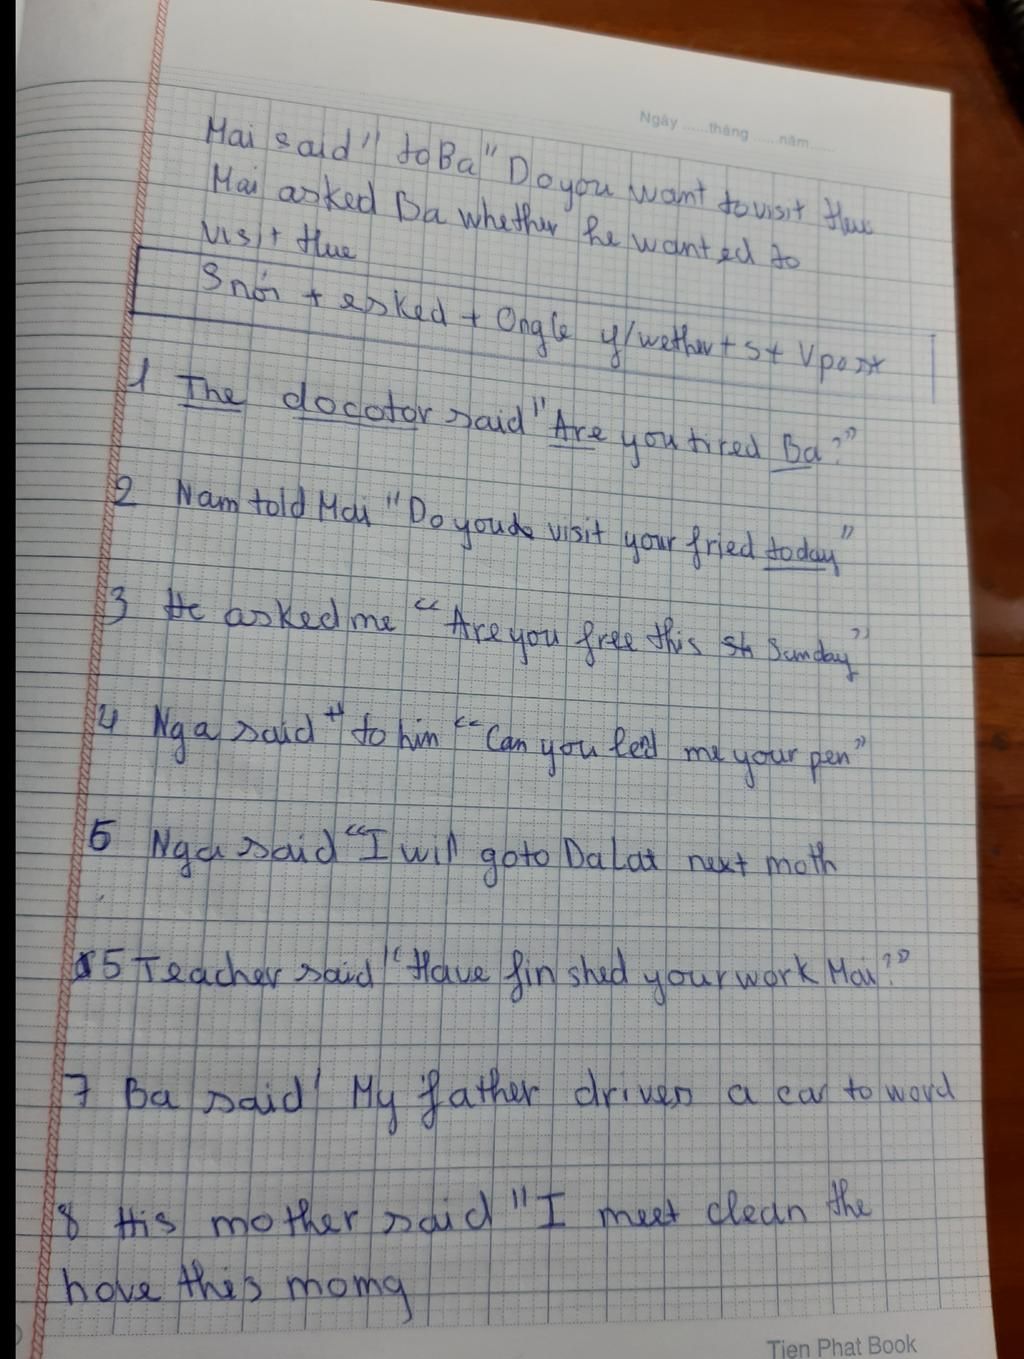 Ngày ......tháng ...... năm......
Mai said" to Ba "Do you want to visit Hue
Mai asked Ba whether he wanted to
visit Hue
S nói + asked + Ongle y/wether + S + Vpast
1 The docotor said "Are you tired Ba?"
2 Nam told Mai "Do you visit your fried today"
3 He asked me "Are you free this Sunday"
4 Nga said to him "Can you your pen"
5 Nga said "I will go to Da Lat next moth
5 Teacher said "Have finshed your work Mai?"
7 Ba said' My father drives a car to word
8 His mother said "I meet clean the
hove this momg
Tien Phat Book